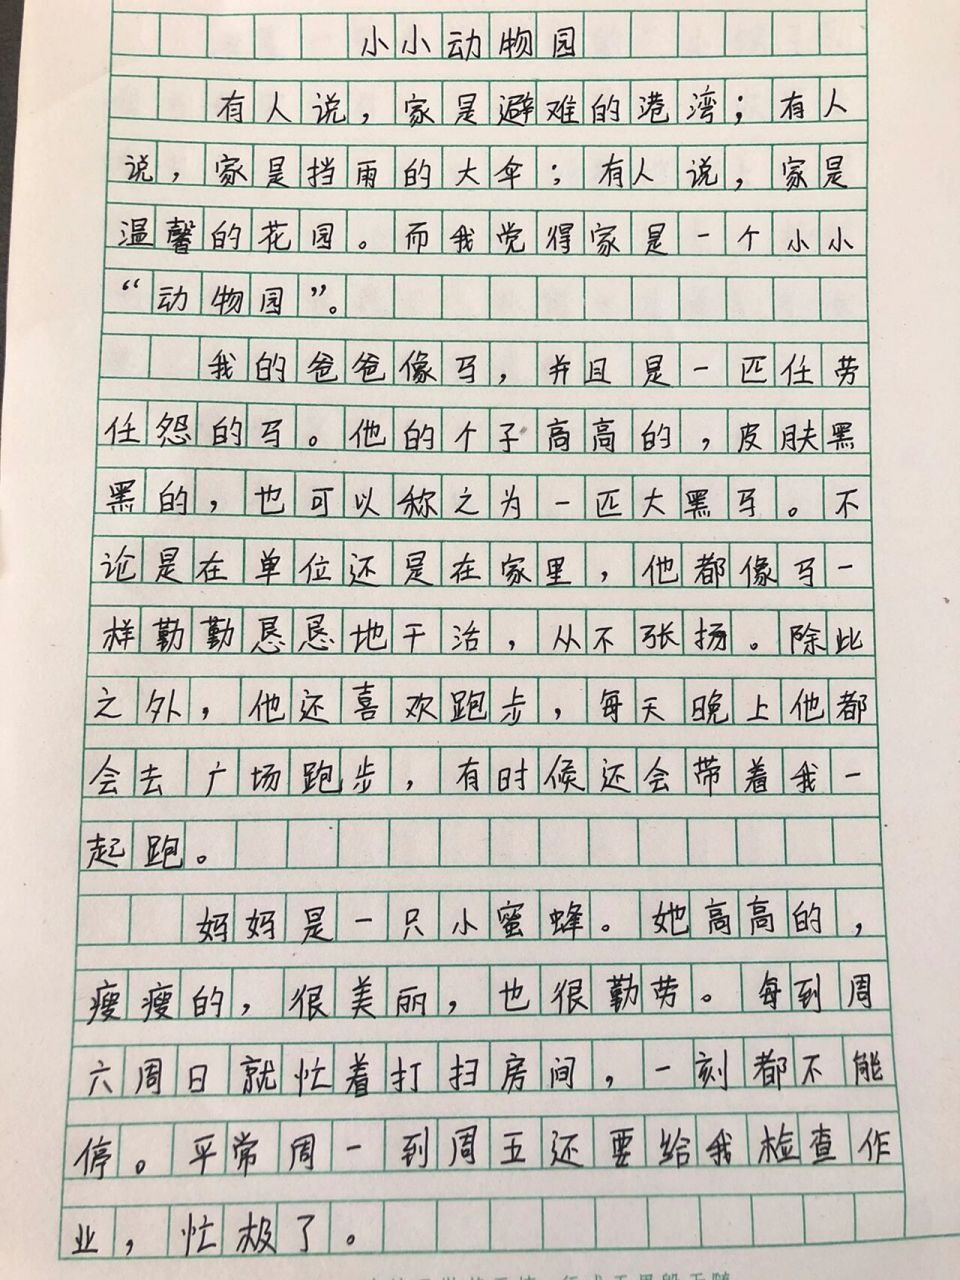 小小动物园
有人说，家是避难的港湾；有人
说，家是挡雨的大伞；有人说，家是
温馨的花园。而我觉得家是一个小小
“动物园”。
我的爸爸像马，并且是一匹任劳
任怨的马。他的个子高高的，皮肤黑
黑的，也可以称之为一匹大黑马。不
论是在单位还是在家里，他都像马一
样勤勤恳恳地干活，从不张扬。除此
之外，他还喜欢跑步，每天晚上他都
会去广场跑步，有时候还会带着我一
起跑。
妈妈是一只小蜜蜂。她高高的，
瘦瘦的，很美丽，也很勤劳。每到周
六周日就忙着打扫房间，一刻都不能
停。平常周一到周五还要给我检查作
业，忙极了。